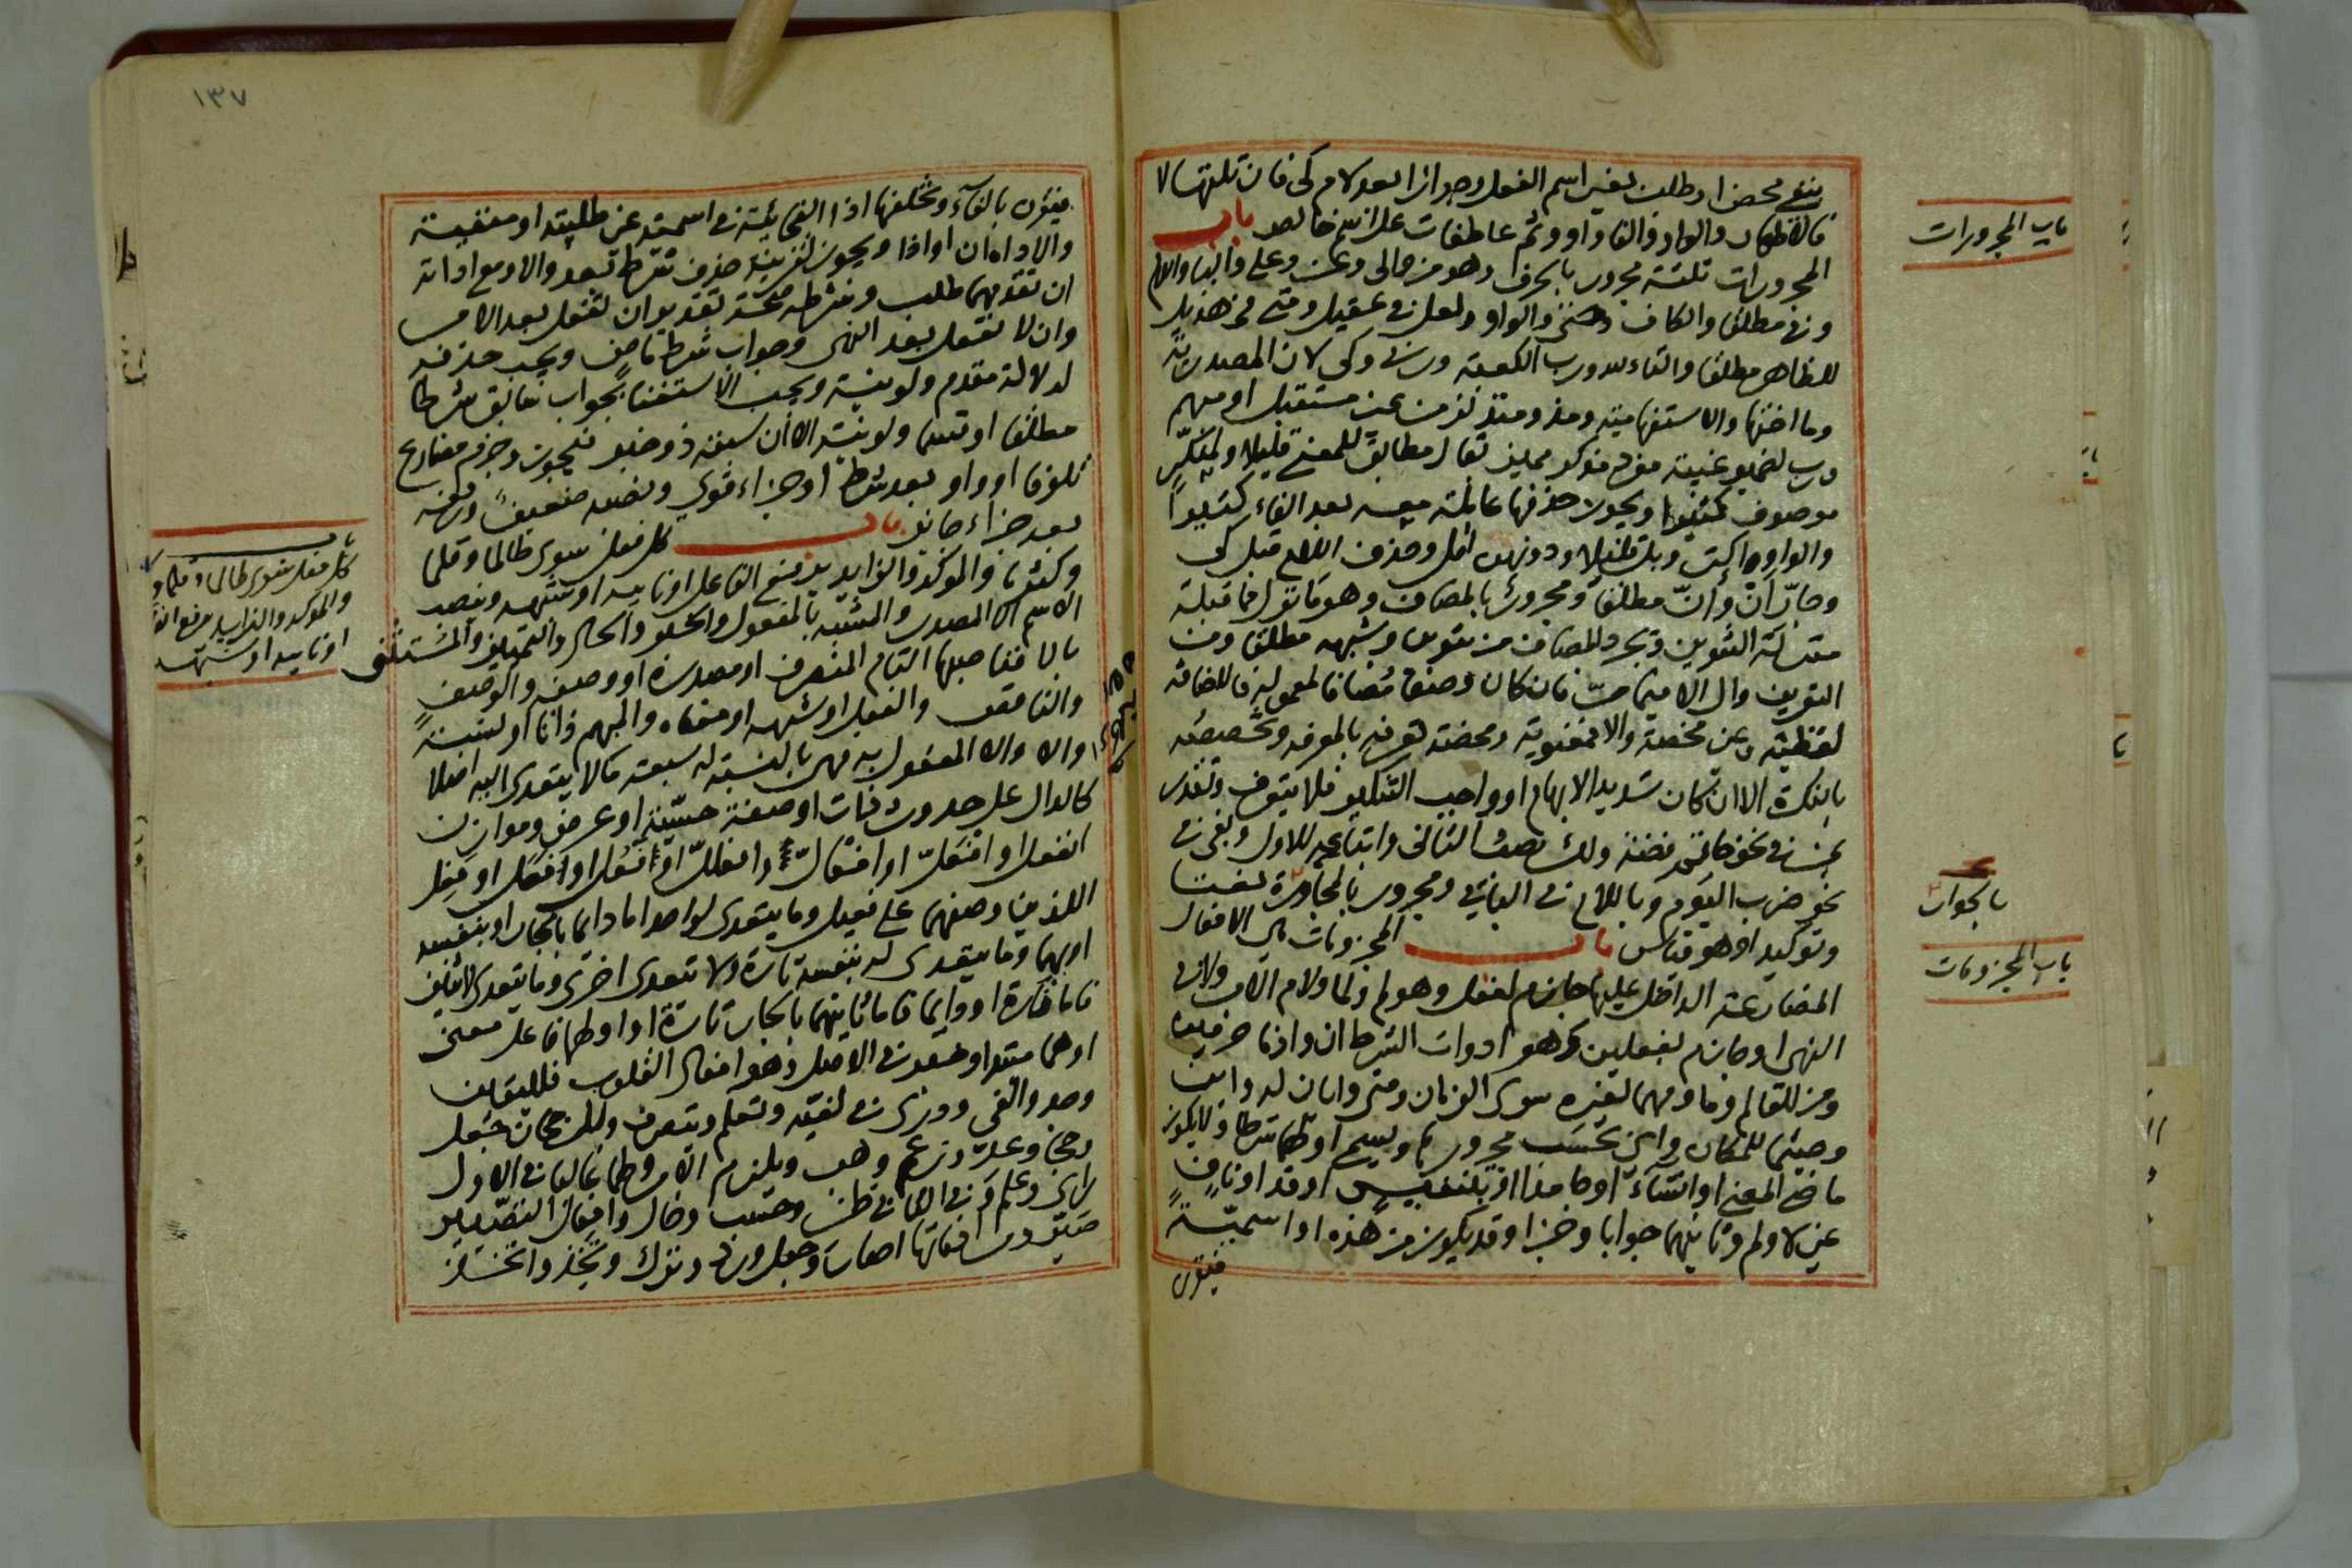 بنفي محض او طلب بغير اسم الفعل وجوازا بعد لام كي فان تلتها لا
فالاظهار والواو والفا واو وثم عاطفات على اسم خالص باب
المجرورات ثلثة مجرور بالحرف وهو من والى وعن وعلى والبا واللام
وفي مطلقا والكاف وحتى والواو ولعل في عقيل ومتى في هذيل
للظاهر مطلقا والتاء لله ورب الكعبة وربي وكي لان المصدرية
وما اختها والاستفهامية ومذ ومنذ لزمن غير مستقبل او مبهم
ورب لضمير غيبة مفرد مذكر مميز مطابق للمعنى قليلا ولمنكر
موصوف كثيرا ويجوز حذفها عاملة بعد الفاء كثيرا
والواو اكثر وبل قليلا ودونهن اقل وحذف اللام قبل كي
وجار ان وأن مطلقا ومجرور بالمضاف وهو ما نزل مما قبله
منزلة التنوين ويجرد المضاف من تنوين وشبهه مطلقا ومن
التعريف وال الا فيما مر فان كان وصفا مضافا لمعموله فالاضافة
لفظية وغير محضة والا فمعنوية ومحضة تعرفه بالمعرفة وتخصصه
بالنكرة الا ان كان شديد الابهام او واجب التنكير فلا يتعرف وتقدر
بمن في نحو خاتم فضة ولك نصب الثاني واتباعه للاول وبفي في
نحو ضرب اليوم وباللام في الباقي ومجرور بالمجاورة نعت
وتوكيد او هو قياس باب المجزومات الافعال
المضارعة الداخل عليها جازم لفعل وهو لم ولما ولام الامر ولا في
النهي او جازم لفعلين وهو ادوات الشرط ان واذما حرفين
ومن للعاقل وما ومهما لغيره سوى الزمان ومتى وايان له واين
وحيثما للمكان واي بحسب مجرورها ويسمى اولهما شرطا ولا يكون
ماضي المعنى او انشاء او جامدا او بتنفيس او قد او ناف
غير لا ولم وثانيهما جوابا وجزا وقد يكون من هذه او اسمية
فيقرن
باب المجرورات
بالجوار
باب المجزومات
١٣٧
فيقرن بالفاء وتخلفها اذا الفجائية في اسمية غير طلبية او منفية
والاداة ان او اذا ويجوز لقرينة حذف شرط بعد والا ومع اداته
ان تقدمهما طلب وشرطه صحة تقدير ان تفعل بعد الامر
وان لا تفعل بعد النهي وجواب شرط ماض ويجب حذفه
لدلالة مقدم ولو نية ويجب الاستغنا بجواب سابق شرطا
مطلقا او قسما ولو نية الا ان سبقه ذو خبر فيجوز وجزم مضارع
تلو فا او واو بعد شرط او جزاء قوي ونصبه ضعيف ورفعه
بعد جزاء جائز باب كل فعل سوى طالما وقلما
وكثرما والموكد والزايد يرفع الفاعل او نايبه او شبهه وينصب
الاسم الا المصدر والمشبه بالمفعول والخبر والحال والتمييز والمستثنى
بالا فناصبها التام المتصرف او مصدره او وصفه والوصف
والناقص والفعل او شبهه او معناه والمبهم ذاتا او نسبة
والا والا المفعول به فهي بالنسبة له سبعة ما لا يتعدى اليه اصلا
كالدال على حدوث ذات او صفة حسية او عرض وموازن
انفعل او افعل او افعال وافعلل او افعل او فعل او فعل
اللذين وصفهما على فعيل وما يتعدى لواحد اما دائما بالجار او بنفسه
او بهما وما يتعدى له بنفسه تارة ولا يتعدى اخرى وما يتعدى لاثنين
فاما تارة او دايما فاما ثانيهما بالجار تارة او اولهما فاعل معنى
او هما مبتدا وخبر في الاصل وهو افعال القلوب فلليقين
وجد والفى ودرى في لغية وتعلم ويتصرف وللرجحان جعل
وحجا وعد وزعم وهب ويلزم الامر ولهما غالبا في الاول
راى وعلم وفي الثاني ظن وحسب وخال وافعال التصيير
صير ورد افعالها اصار وجعل ورد وترك وتخذ واتخذ
باب
كل فعل سوى طالما وقلما و
والموكد والزايد يرفع الفا
او نايبه او شبهه